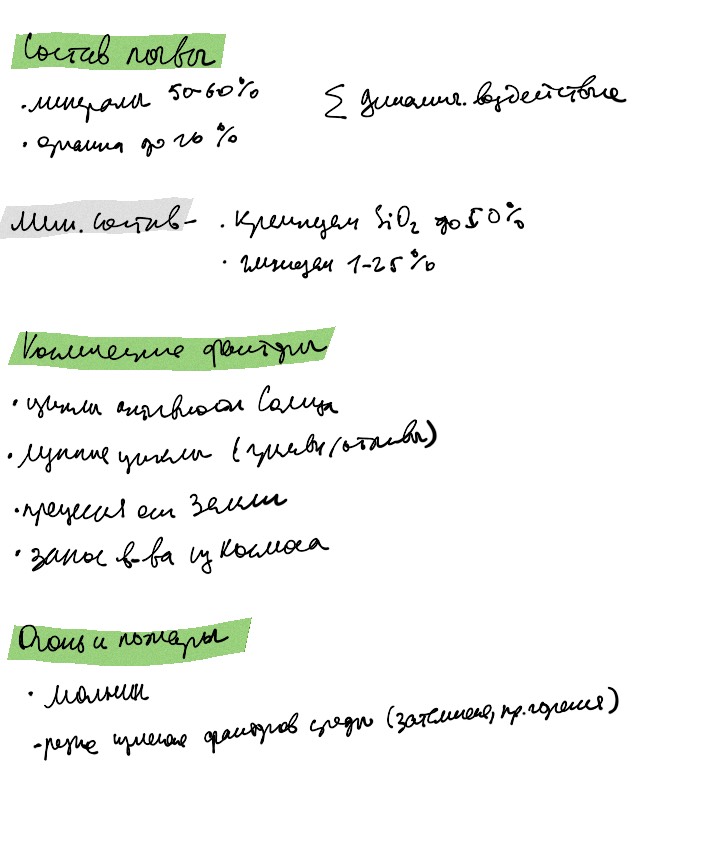 Состав почвы
· минералы 50-60%
∑ динамич. воздействие
· органика до 10%
Мин. состав - · Кремнезем SiO₂ до 50%
· глинозем 1-25%
Космические факторы
· циклы активности Солнца
· лунные циклы (приливы/отливы)
· прецессия оси Земли
· занос в-ва из Космоса
Огонь и пожары
· молнии
- резкое изменение факторов среды (затемнение, пр. горения)